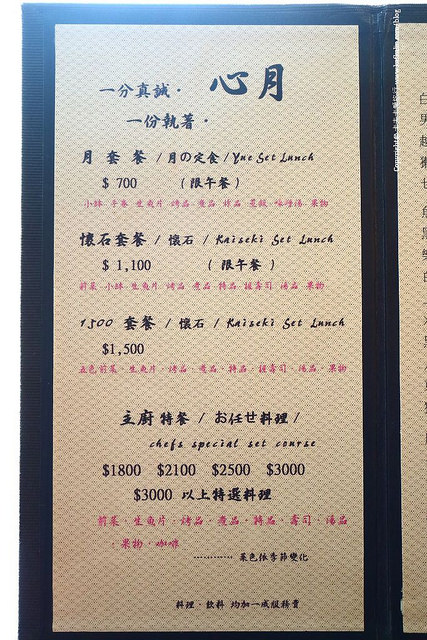 心月
一分真誠・
一份執著・
月 套 餐 / 月の定食 / Yue Set Lunch
$ 700 （ 限午餐 ）
小缽・手卷・生魚片・烤品・煮品・炸品・蒸飯・味噌湯・果物
懷石套餐 / 懷石 / Kaiseki Set Lunch
$ 1,100 （ 限午餐 ）
前菜・小缽・生魚片・烤品・煮品・特品・握壽司・湯品・果物
1500 套餐 / 懷石 / Kaiseki Set Lunch
$1,500
五色前菜・生魚片・烤品・煮品・特品・握壽司・湯品・果物
主廚 特餐 / お任せ料理 /
chefs special set course
$1800 $2100 $2500 $3000
$3000 以上特選料理
前菜・生魚片・烤品・煮品・特品・壽司・湯品
・果物・咖啡
………… 菜色依季節變化
料理・飲料 均加一成服務費